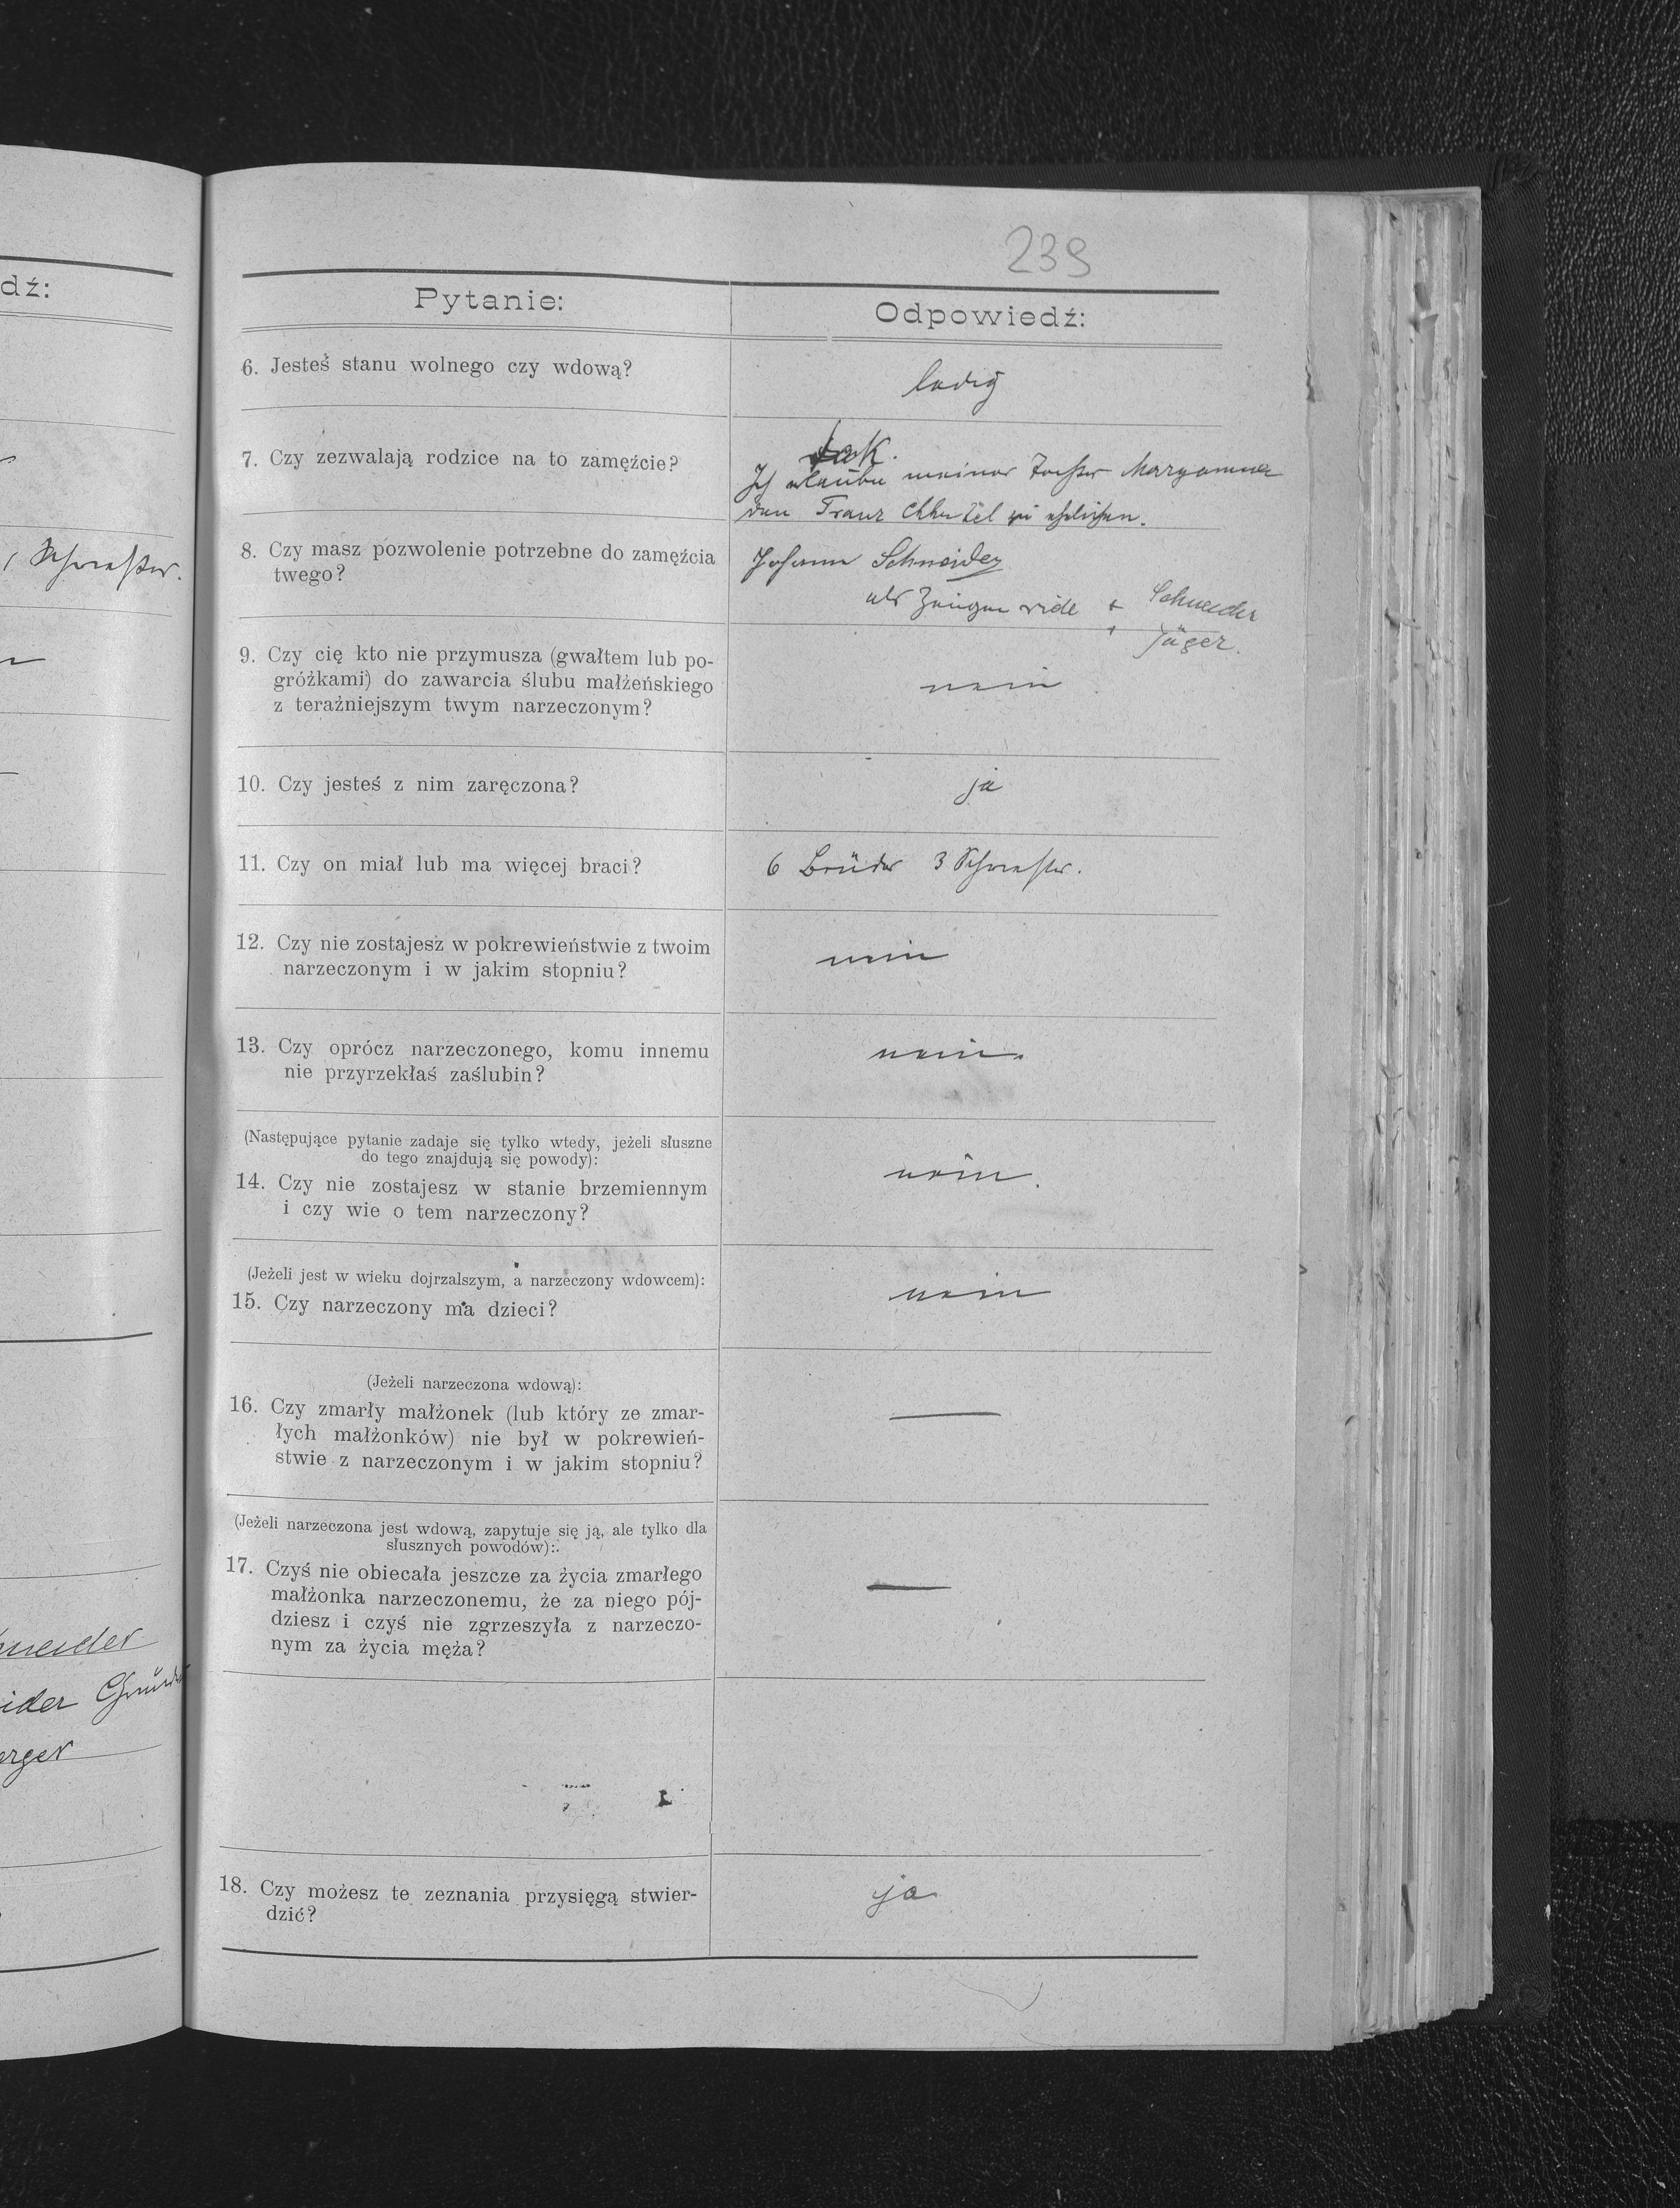 239
dź:
Schwester.
Pytanie:
Odpowiedź:
6. Jesteś stanu wolnego czy wdową?
ledig
7. Czy zezwalają rodzice na to zamęźcie?
tak.
Ich erlaube meiner Tochter Maryanna
den Franz zu ehelichen.
8. Czy masz pozwolenie potrzebne do zamęźcia
twego?
Johann Schneider
als Zeugen + Schneider
+ Jäger.
9. Czy cię kto nie przymusza (gwałtem lub po-
gróżkami) do zawarcia ślubu małżeńskiego
z teraźniejszym twym narzeczonym?
nein
10. Czy jesteś z nim zaręczona?
ja
11. Czy on miał lub ma więcej braci?
6 Brüder 3 Schwester.
12. Czy nie zostajesz w pokrewieństwie z twoim
narzeczonym i w jakim stopniu?
nein
13. Czy oprócz narzeczonego, komu innemu
nie przyrzekłaś zaślubin?
nein.
(Następujące pytanie zadaje się tylko wtedy, jeżeli słuszne
do tego znajdują się powody):
14. Czy nie zostajesz w stanie brzemiennym
i czy wie o tem narzeczony?
nein.
(Jeżeli jest w wieku dojrzalszym, a narzeczony wdowcem):
15. Czy narzeczony ma dzieci?
nein
(Jeżeli narzeczona wdową):
16. Czy zmarły małżonek (lub który ze zmar-
łych małżonków) nie był w pokrewień-
stwie z narzeczonym i w jakim stopniu?
—
(Jeżeli narzeczona jest wdową, zapytuje się ją, ale tylko dla
słusznych powodów):
17. Czyś nie obiecała jeszcze za życia zmarłego
małżonka narzeczonemu, że za niego pój-
dziesz i czyś nie zgrzeszyła z narzeczo-
nym za życia męża?
—
18. Czy możesz te zeznania przysięgą stwier-
dzić?
ja